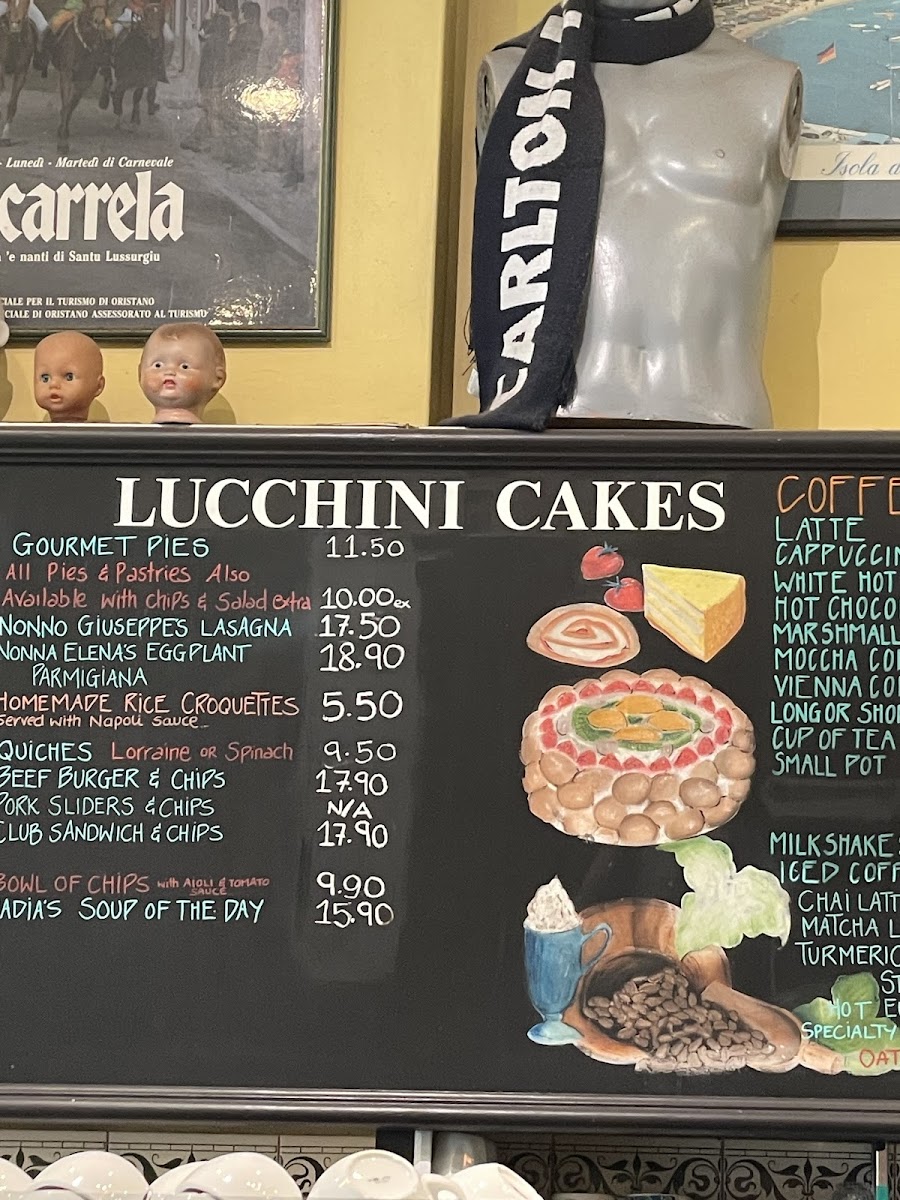 - Lunedì - Martedì di Carnevale
carrela
'e nanti di Santu Lussurgiu
CIALE PER IL TURISMO DI ORISTANO
CIALE DI ORISTANO ASSESSORATO AL TURISMO
CARLTON
Isola d
LUCCHINI CAKES
GOURMET PIES 11.50
All Pies & Pastries Also
Available with chips & Salad extra 10.00 ex
NONNO GIUSEPPE'S LASAGNA 17.50
NONNA ELENA'S EGGPLANT 18.90
PARMIGIANA
HOMEMADE RICE CROQUETTES 5.50
Served with Napoli sauce
QUICHES Lorraine OR Spinach 9.50
BEEF BURGER & CHIPS 17.90
PORK SLIDERS & CHIPS N/A
CLUB SANDWICH & CHIPS 17.90
BOWL OF CHIPS with AIOLI & TOMATO SAUCE 9.90
ADIA'S SOUP OF THE DAY 15.90
COFFE
LATTE
CAPPUCCIN
WHITE HOT
HOT CHOCO
MARSHMALL
MOCCHA CO
VIENNA CO
LONG OR SHO
CUP OF TEA
SMALL POT
MILKSHAKES
ICED COFF
CHAI LATT
MATCHA L
TURMERIC
ST
HOT E
SPECIALTY
OAT